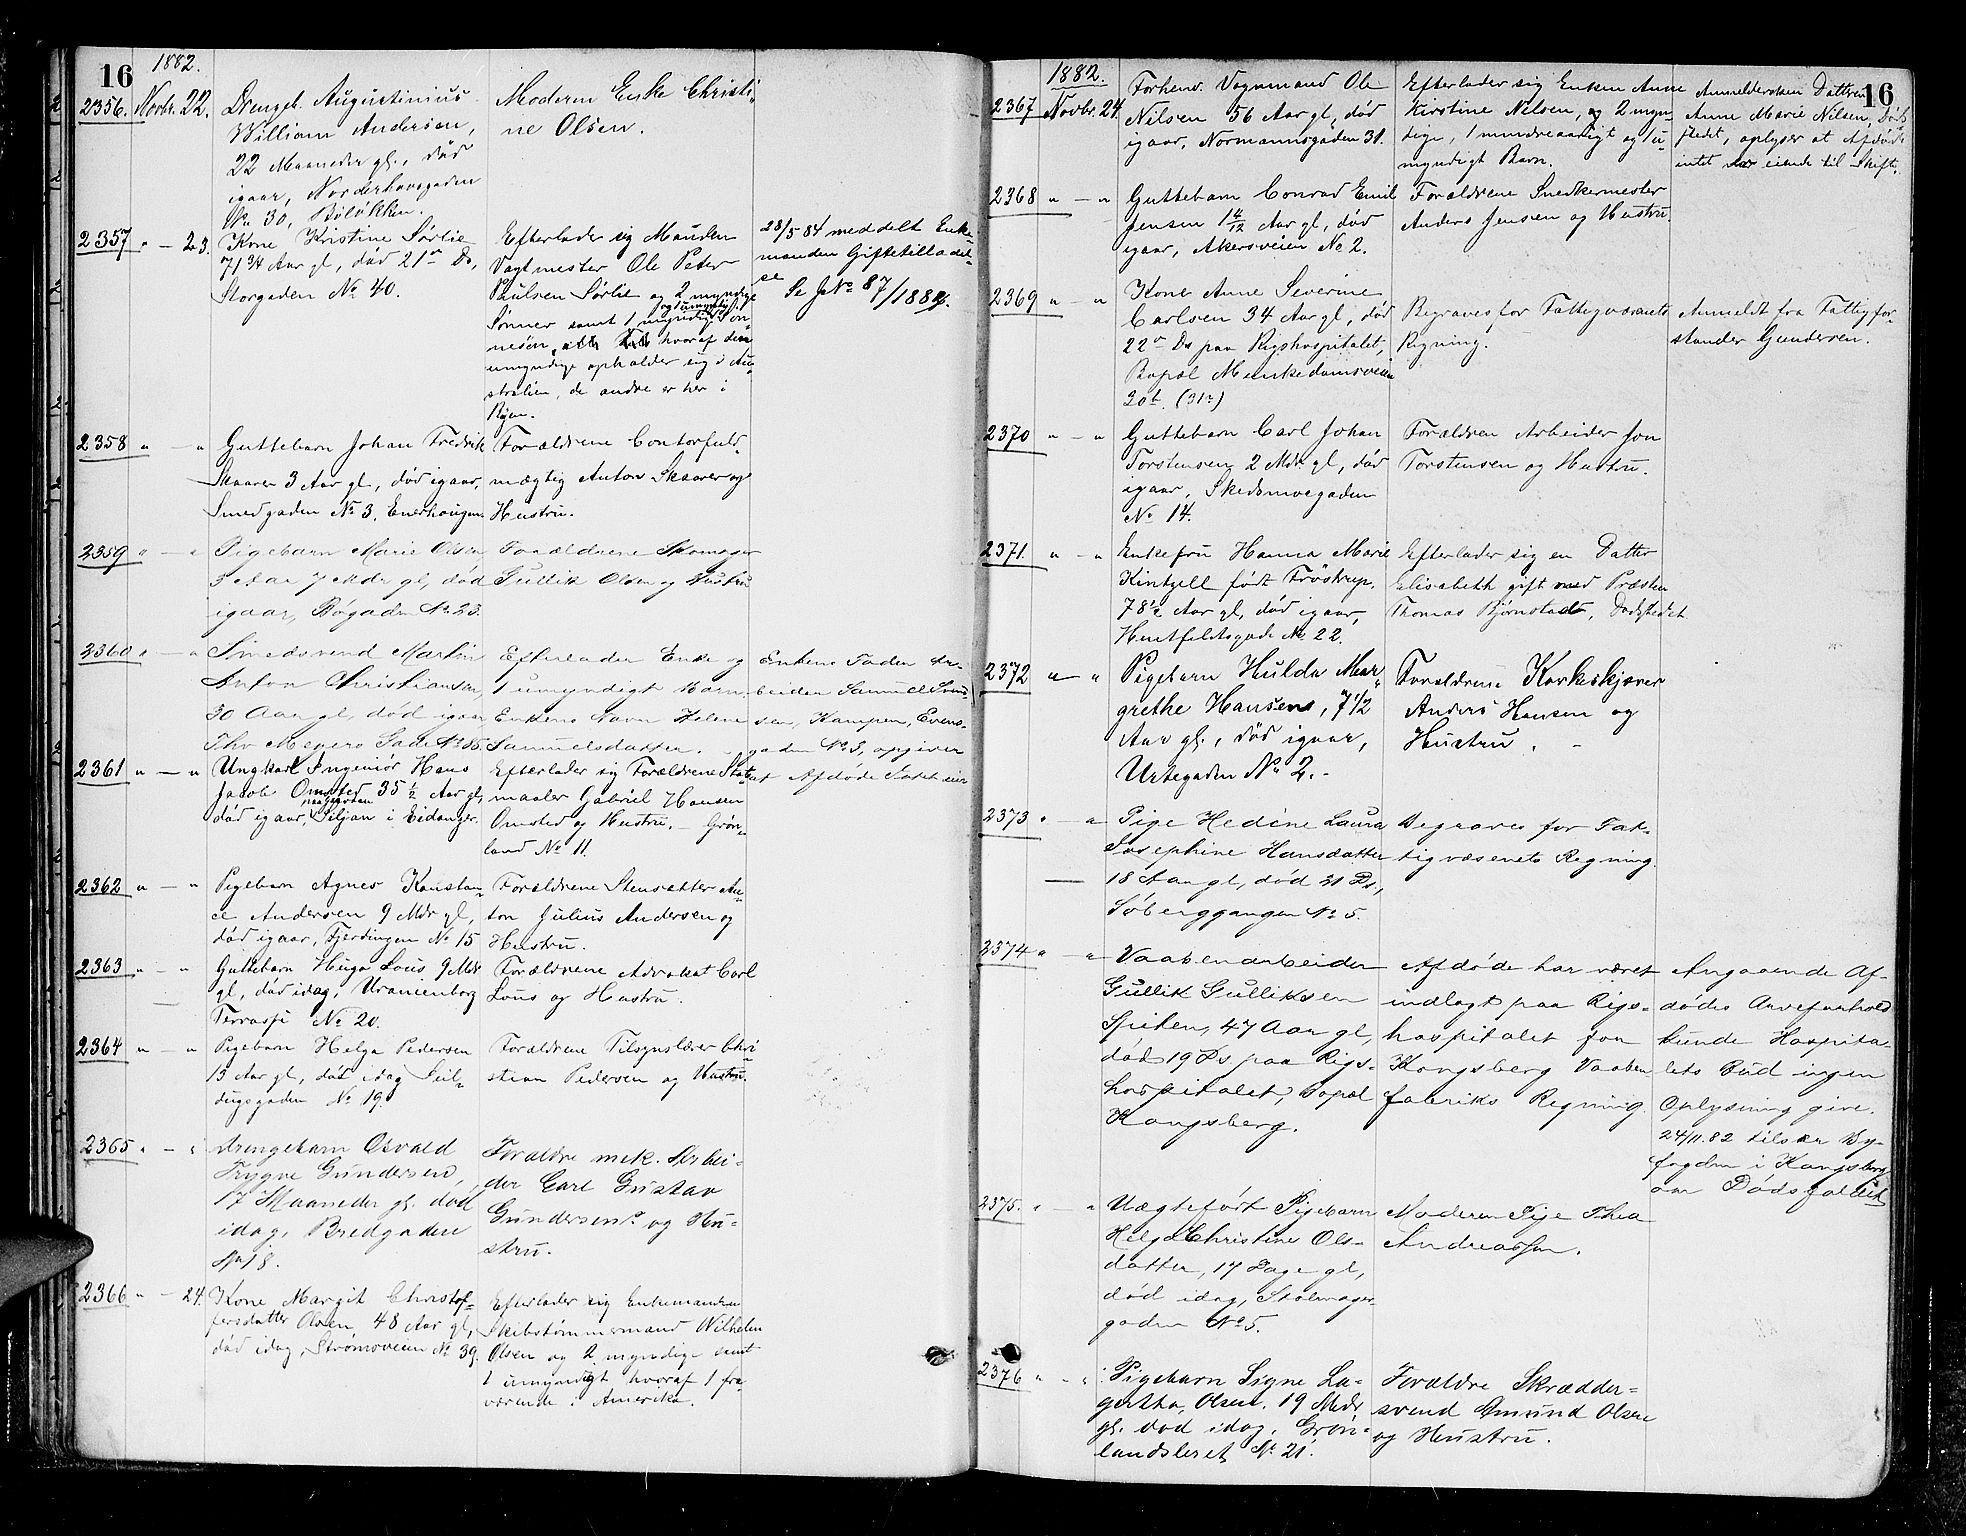 16
1882.
2356. Novbr. 22.
Drengeb. Augustinius
William Andersen,
22 Maaneder gl., död
igaar, Norderhovsgaden
No 30, Böløkken.
Moderen Enke Christi-
ne Olsen.
2357 " — 23.
Kone Kristine Sørlie
71 3/4 Aar gl, död 21de Ds,
Storgaden No 40.
Efterlader sig Manden
Vagtmester Ole Peter
Paulsen Sørlie og 2 myndige
Sønner samt 1 myndig og 1 umyndig Søn-
nesön, hvoraf den
umyndige opholder sig i Au-
stralien, de andre er her i
Byen.
28/5 84 meddelt Enke-
manden Giftetilladel-
se
Se J No 87/1884.
2358 " — "
Guttebarn Johan Fredrik
Skaarer 3 Aar gl, död igaar,
Smedgaden No 3, Enerhaugen.
Forældrene Contorfuld-
mægtig Anton Skaarer og
Hustru.
2359 " — "
Pigebarn Marie Olsen
3 Aar 7 Mdr gl, död
igaar, Bøgaden No 23.
Forældrene Skomager
Gullik Olsen og Hustru
2360 " — "
Smedsvend Martin
Anton Christiansen,
30 Aar gl, död igaar
Thv Meyers Gade No 35.
Efterlader Enke og
1 umyndigt Barn.
Enkens Navn Helene
Samuelsdatter.
Enkens Fader Ar-
beider Samuel Svend-
sen, Kampen, Evens-
gaden No 3, opgiver
at Afdøde Intet eier
2361 " — "
Ungkarl Ingeniör Hans
Jacob Omsted 35 1/2 Aar gl,
död igaar, paa gaarden Siljan i Eidanger.
Efterlader sig Forældrene Stads-
maaler Gabriel Hansen
Omsted og Hustru. — Grøn-
land No 11.
2362 " — "
Pigebarn Agnes Konstan-
ce Andersen 9 Mdr gl,
död igaar, Fjerdingen No 15
Forældrene Stensætter An-
ton Julius Andersen og
Hustru.
2363 " — "
Guttebarn Hugo Lous 9 Mdr
gl, död idag, Uranienborg
Terrasse No 20.
Forældrene Advokat Carl
Lous og Hustru.
2364 " — "
Pigebarn Helga Pedersen
13 Aar gl, död idag Seil-
dugsgaden No 19.
Forældrene Tilsynslærer Chri-
stian Pedersen og Hustru.
2365 " — "
Drengebarn Osvald
Trygve Gundersen,
17 Maaneder gl. död
idag, Bredgaden
No 18.
Forældre mek. Arbei-
der Carl Gustav
Gundersen og Hu-
stru.
2366 " — 24.
Kone Margit Christof-
fersdatter Olsen 48 Aar gl,
död idag, Strømsveien No 39.
Efterlader sig Enkemanden
Skibstömmermand Wilhelm
Olsen og 2 myndige samt
1 umyndigt hvoraf 1 fra-
værende i Amerika.
16
1882.
2367 Novbr. 24.
Forhenv. Vognmand Ole
Nilsen 56 Aar gl, död
igaar, Normannsgaden 31.
Efterlader sig Enken Anne
Kirstine Nilsen, og 2 myn-
dige, 1 mindreaarigt og 1 u-
myndigt Barn.
Anmeldersken Datteren
Anne Marie Nilsen, Døds-
stedet, oplyser at Afdøde
intet var eiende til Skifte.
2368 " — "
Guttebarn Conrad Emil
Jensen 1 4/12 Aar gl, död
igaar, Akersveien No 2.
Forældrene Snedkermester
Anders Jensen og Hustru
2369 " — "
Kone Anne Severine
Carlsen 34 Aar gl, död
22de Ds paa Rigshospitalet,
Bopæl Munkedamsveien
20b. (31r)
Begraves for Fattigvæsenets
Regning.
Anmeldt fra Fattigfor-
stander Gundersen.
2370 " — "
Guttebarn Carl Johan
Torstensen 2 Mdr gl, död
igaar, Skedsmogaden
No 14.
Forældren Arbeider Jon
Torstensen og Hustru.
2371. " — "
Enkefru Hanna Marie
Kintzell født Tröstrup,
78 1/2 Aar gl, död igaar,
Huitfeldtsgade No 22.
Efterlader sig en Datter
Elisabeth gift med Præsten
Thomas Bjørnstad, Dødsstedet
2372 " — "
Pigebarn Hulda Mar-
grethe Hansen, 7 1/2
Aar gl., död igaar,
Urtegaden No 2.-
Forældrene Korkeskjærer
Anders Hansen og
Hustru. -
2373 " — "
Pige Hedine Laura
Josephine Hansdatter
18 Aar gl, död 21 Ds,
Söberggangen No 5.
Begraves for Fat-
tigvæsenets Regning.
2374 " — "
Vaabenarbeider
Gullik Gulliksen
Spiten, 47 Aar gl,
död 19 Ds paa Rigs-
hospitalet, Bopæl
Kongsberg.
Afdøde har været
indlagt paa Rigs-
hospitalet for
Kongsberg Vaaben
fabriks Regning.
Angaaende Af-
dødes Arveforhold
kunde Hospita-
lets Bud ingen
Oplysning give.
24/11.82 tilskr. By-
fogden i Kongsberg
om Dødsfaldet
2375. " — "
Uægtefødt Pigebarn
Helga Christine Ols-
datter, 17 Dage gl,
död idag, Stolmager-
gaden No 5.
Moderen Pige Thea
Andreassen.
2376 " — "
Pigebarn Signe La-
gertha Olsen. 19 Mdr
gl. död idag, Grøn-
landsleret No 21.
Forældre Skrædder-
svend Gmund Olsen
og Hustru.